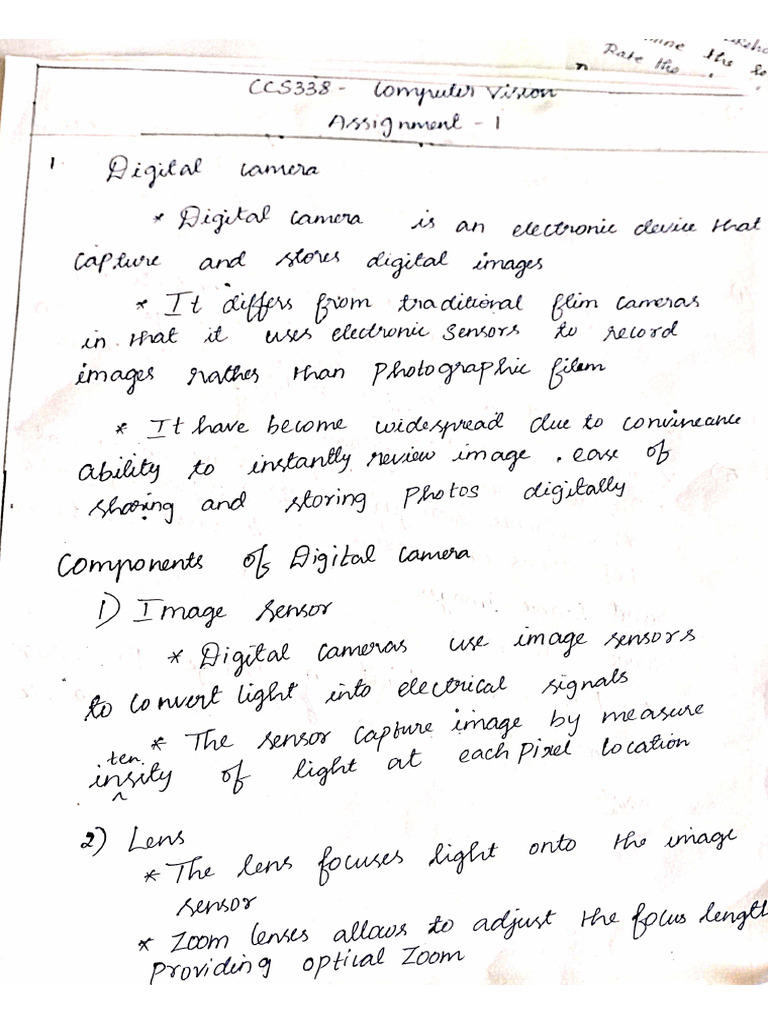 the
Rate the
CCS338 - Computer Vision
Assignment - 1
1. Digital camera
* Digital camera is an electronic device that
capture and stores digital images
* It differs from traditional flim cameras
in that it uses electronic sensors to record
images rather than photographic film
* It have become widespread due to convineance
ability to instantly review image . ease of
sharing and storing photos digitally
Components of Digital camera
1) Image sensor
* Digital cameras use image sensors
to convert light into electrical signals
* The sensor capture image by measure
ten
insity of light at each pixel location
^
2) Lens
* The lens focuses light onto the image
sensor
* Zoom lenses allows to adjust the focus length
providing optical zoom